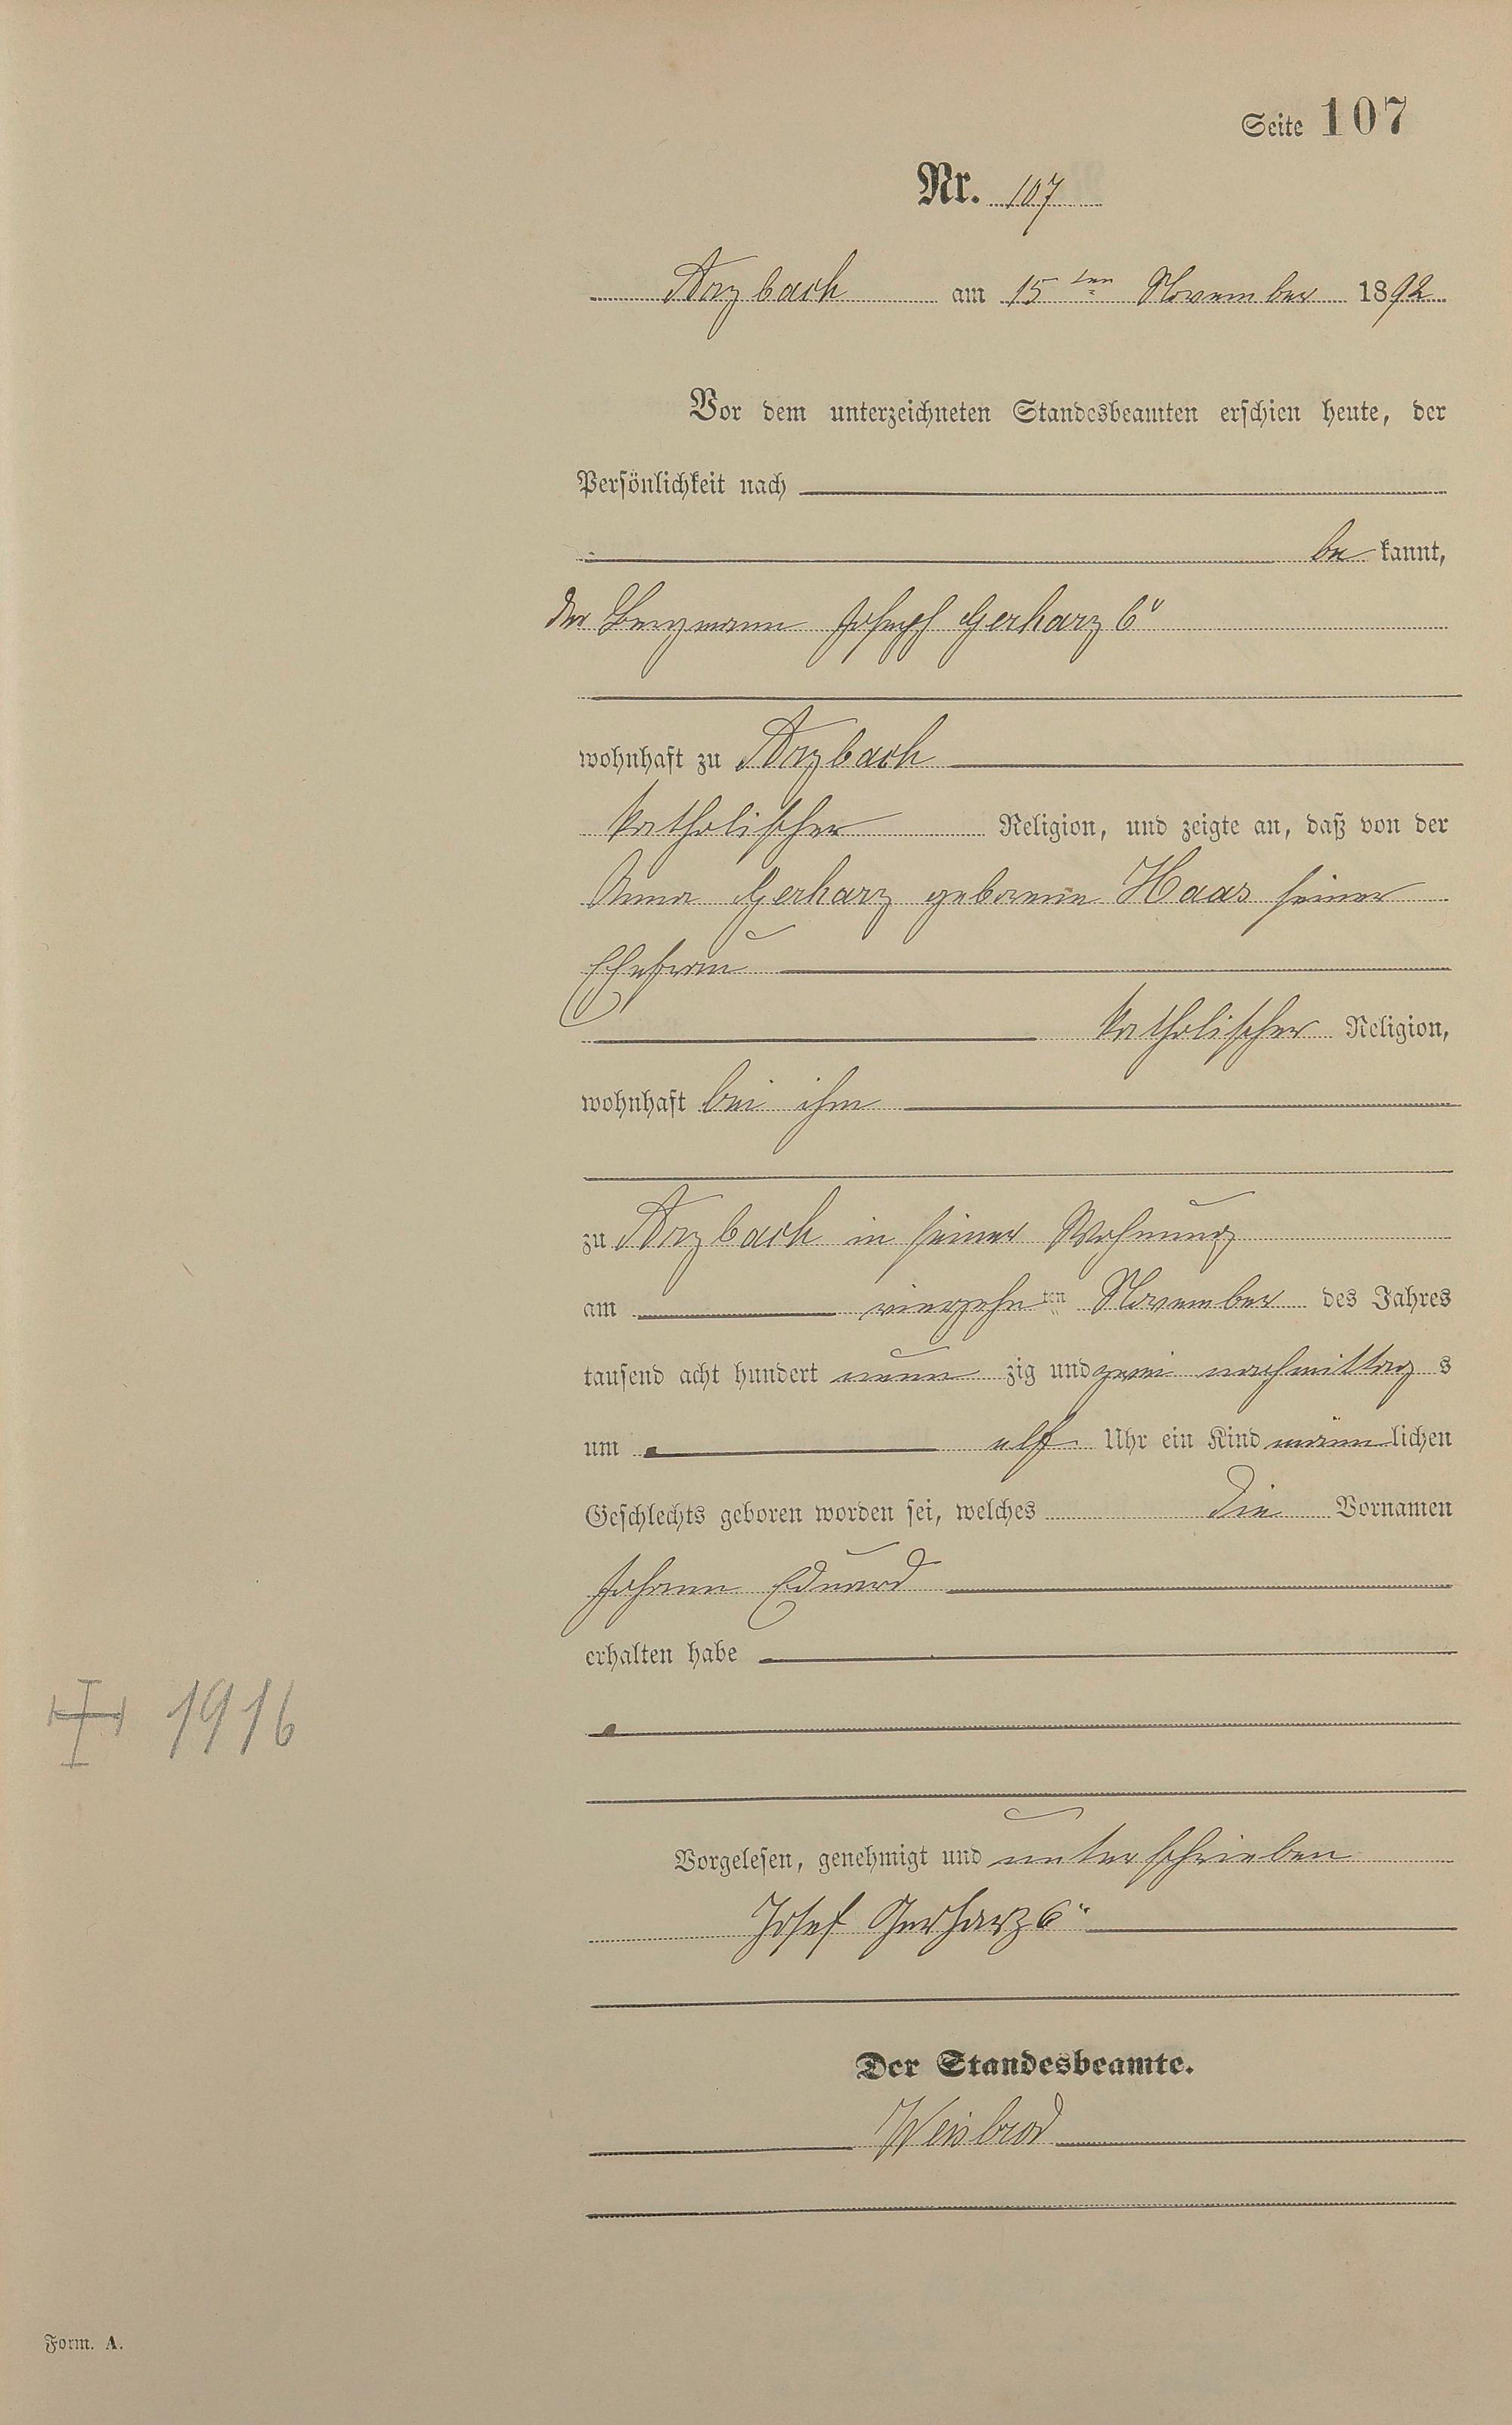 Seite 107
Nr. 107
Arzbach am 15ten November 1892
Vor dem unterzeichneten Standesbeamten erschien heute, der
Persönlichkeit nach
be kannt,
der Bergmann Joseph Gerharz 6r
wohnhaft zu Arzbach
katholischer Religion, und zeigte an, daß von der
Anna Gerharz geborene Haas seiner
Ehefrau
katholischer Religion,
wohnhaft bei ihm
zu Arzbach in seiner Wohnung
am vierzehnten November des Jahres
tausend acht hundert neun zig und zwei nachmittag s
um elf Uhr ein Kind männlichen
Geschlechts geboren worden sei, welches die Vornamen
Johann Eduard
erhalten habe
1916
Vorgelesen, genehmigt und unterschrieben
Josef Gerharz 6r
Der Standesbeamte.
Weisbrod
Form. A.